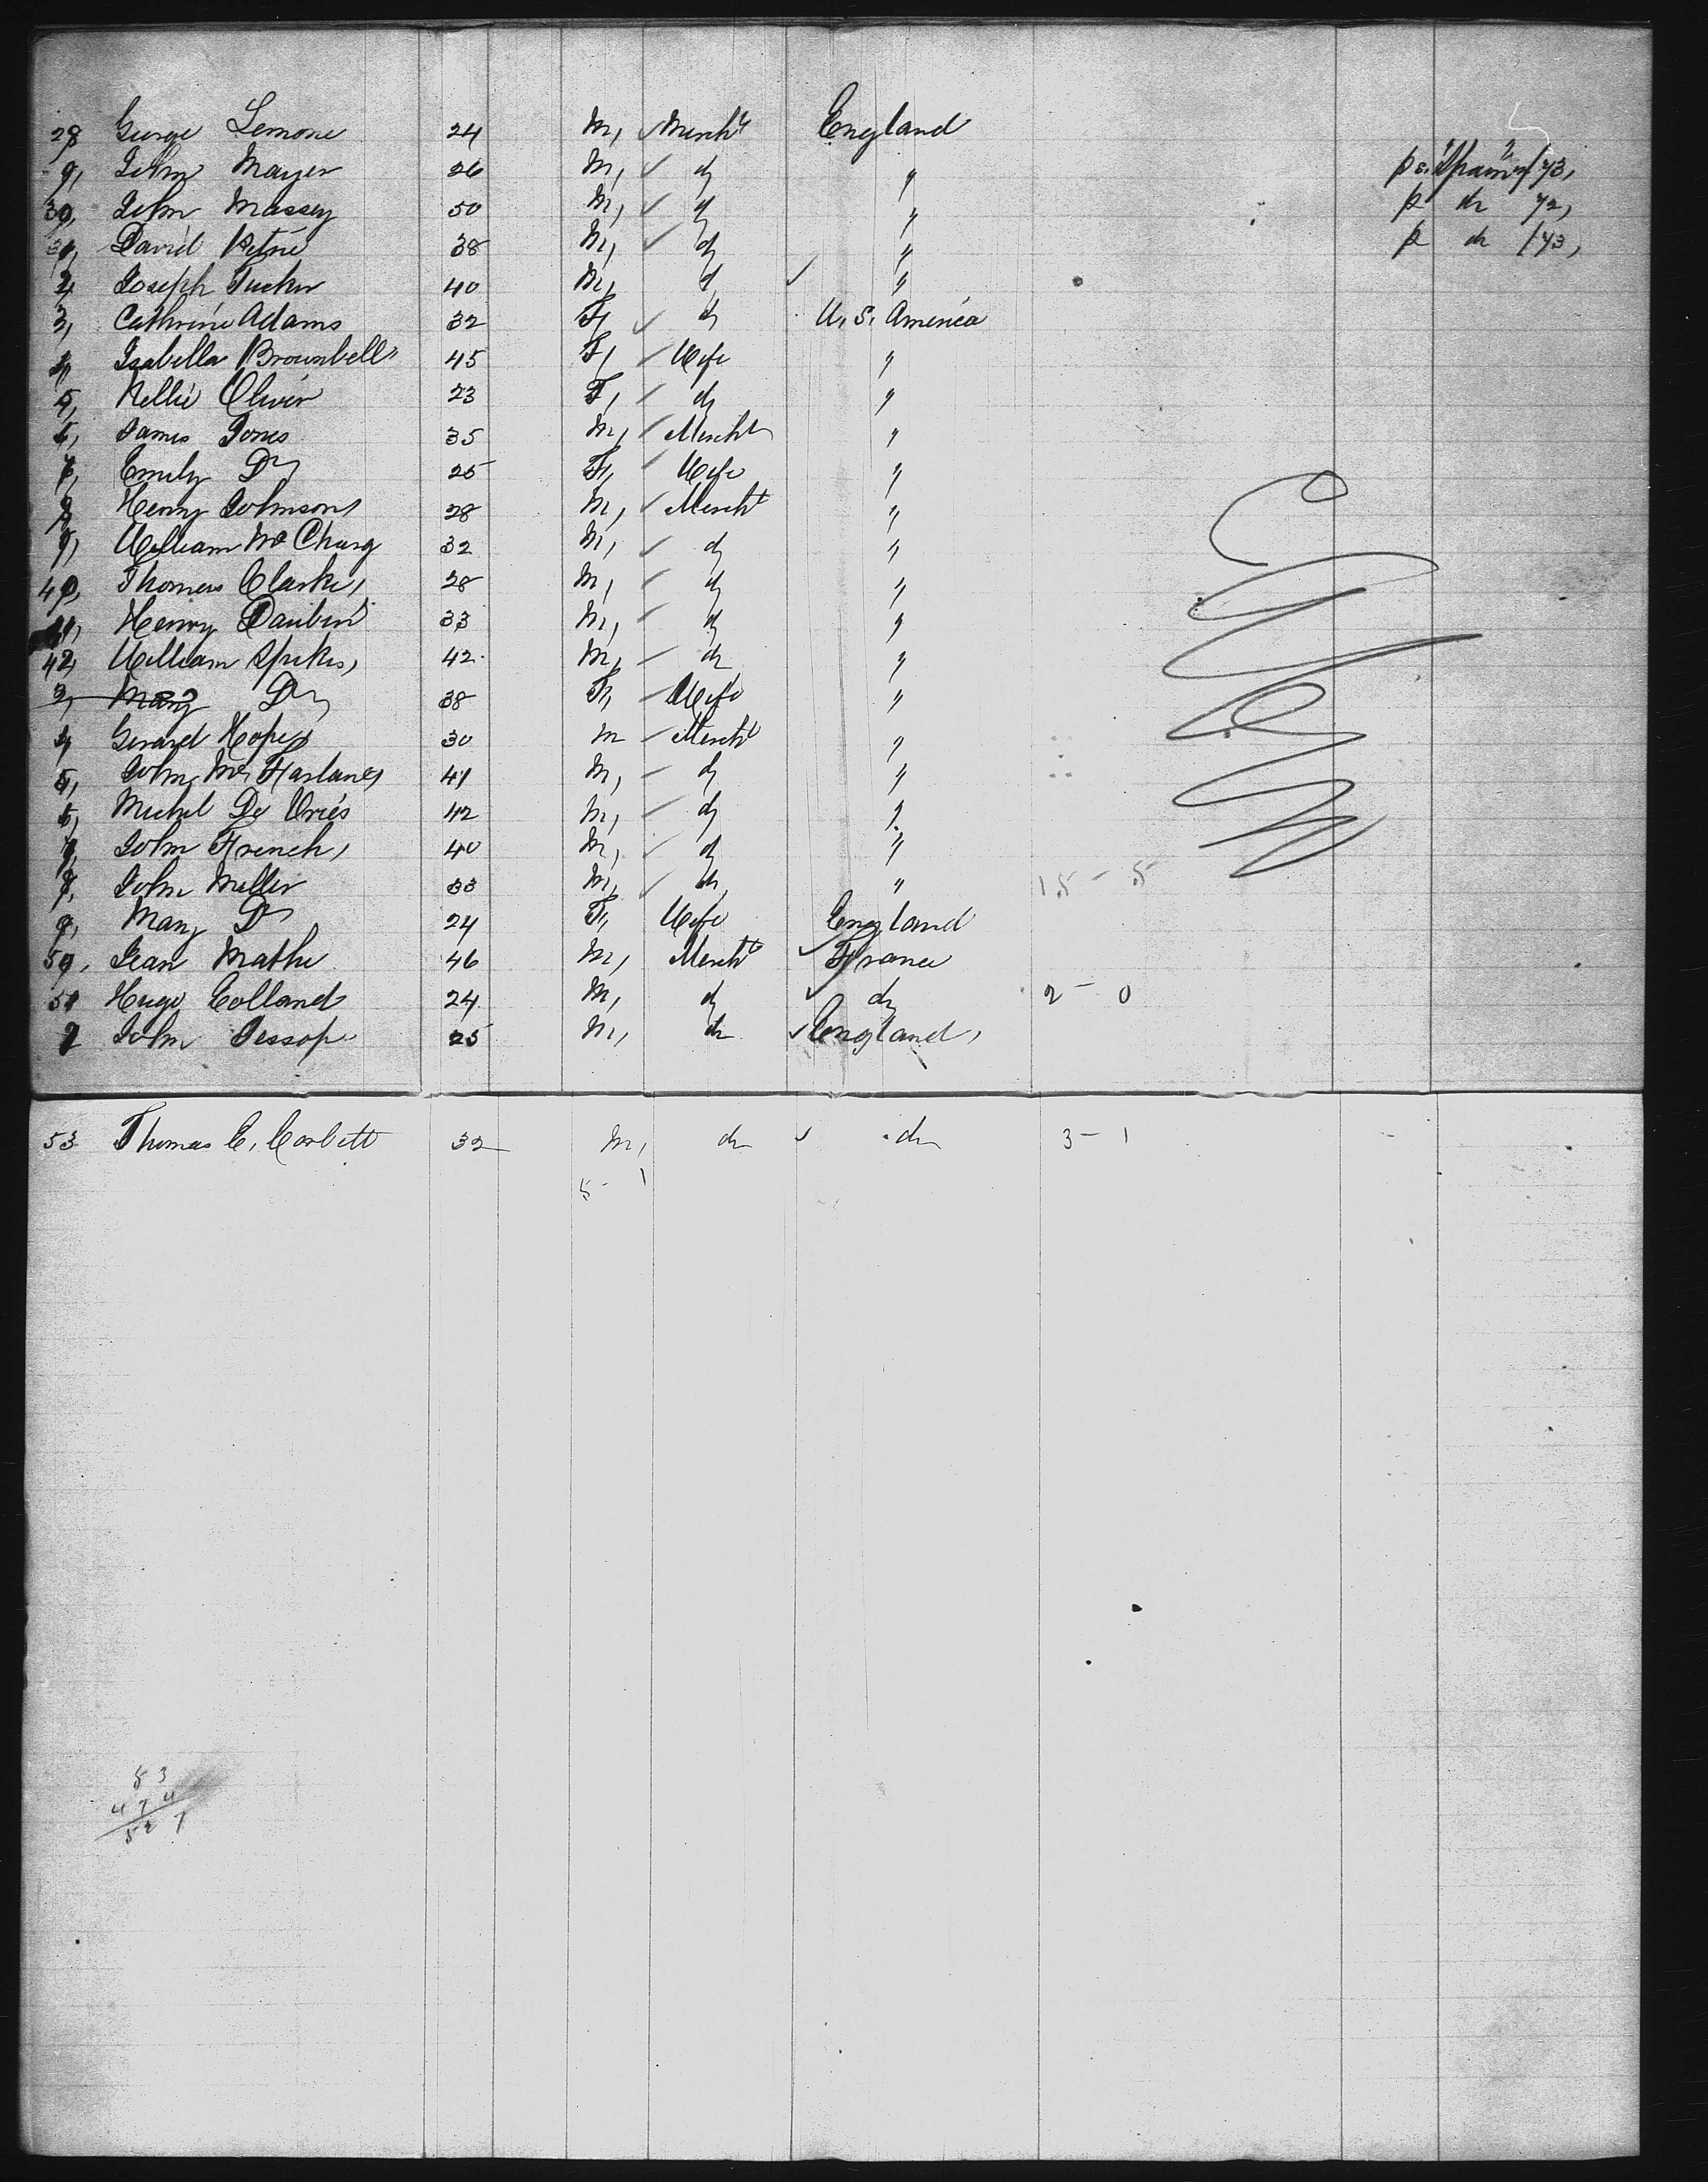 28 George Lemone 24 M, ✓ Mercht England
9, John Mayer 26 M, ✓ do " /73,
30, John Massey 50 M, ✓ do " p do 72,
31, David Petrie 38 M, ✓ do " p do /73,
2, Joseph Tucker 40 M, do ✓ "
3, Cathrine Adams 32 F, ✓ do U. S. America
4, Isabella Brownbell 45 F, ✓ Wife "
5, Nellie Oliver 23 F, ✓ do "
6, James Jones 35 M, ✓ Mercht "
7, Emily Do 25 F, ✓ Wife "
8, Henry Johnson 28 M, ✓ Mercht "
9, William McChurg 32 M, ✓ do "
40, Thomas Clarke, 28 M, ✓ do "
41, Henry 33 M, ✓ do "
42, William Spikes, 42 M, do "
3, Mary Do 38 F, Wife "
4, Gerard Hope 30 M Mercht "
5, John McFarlane, 41 M, do "
6, Michel De Vries 42 M, do "
7, John French, 40 M, ✓ do "
8, John Miller 33 M, ✓ do " 15 - 5
9, Mary Do 24 F, Wife England
50, Jean Mathe 46 M, Mercht ✓ France
51 Hugo Colland 24 M, do ✓ do 2 - 0
2 John Jessop 25 M, do ✓ England,
53 Thomas C. Corbett 32 M, do ✓ do 3 - 1
5 - 1
53
474
527